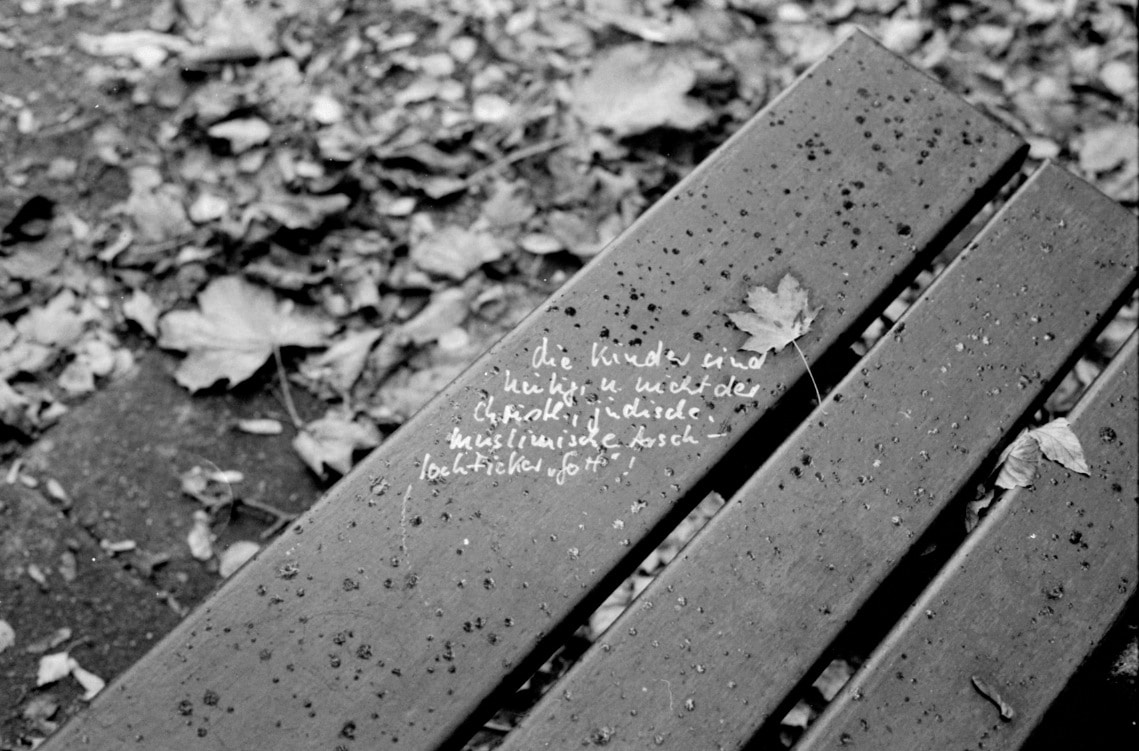 die Kinder sind
heilig, u. nicht der
christl., jüdische,
muslimische Arsch-
lochficker „Gott“!